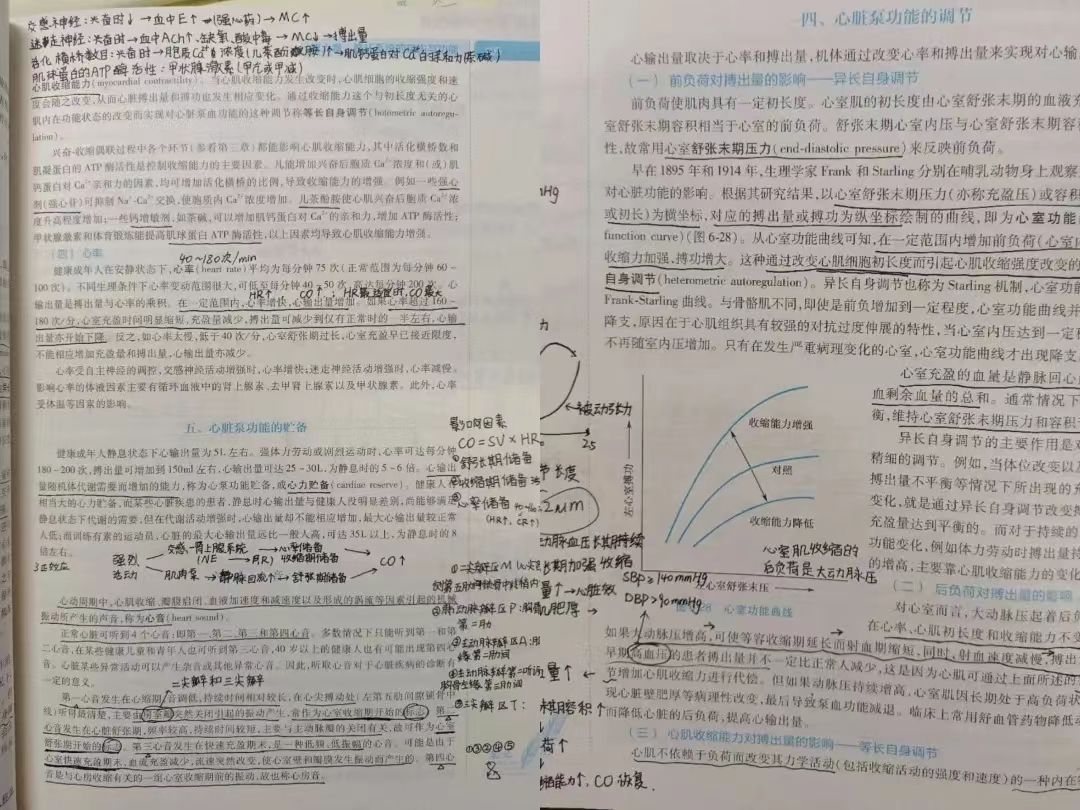 交感神经：兴奋时→血中E↑→(强心药)→MC↑
迷走神经：兴奋时→血中ACh↑、缺氧、酸中毒→MC↓→搏出量
活化横桥数目：兴奋时→胞质Ca²⁺浓度(儿茶酚胺)↑→肌钙蛋白对Ca²⁺亲和力(茶碱)
肌球蛋白的ATP酶活性：甲状腺激素(甲亢或甲减)
心肌收缩能力(myocardial contractility)。当心肌收缩能力发生改变时,心肌细胞的收缩强度和速
度会随之改变,从而心脏搏出量和搏功也发生相应变化。通过收缩能力这个与初长度无关的心
肌内在功能状态的改变而实现对心脏泵血功能的这种调节称等长自身调节(homometric autoregu-
lation)。
兴奋-收缩耦联过程中各个环节(参看第三章)都能影响心肌收缩能力,其中活化横桥数和
肌凝蛋白的 ATP 酶活性是控制收缩能力的主要因素。凡能增加兴奋后胞质 Ca²⁺浓度和(或)肌
钙蛋白对 Ca²⁺亲和力的因素,均可增加活化横桥的比例,导致收缩能力的增强。例如一些强心
剂(强心苷)可抑制 Na⁺-Ca²⁺交换,使胞质内 Ca²⁺浓度增加。儿茶酚胺使心肌兴奋后胞质 Ca²⁺浓
度升高程度增加;一些钙增敏剂,如茶碱,可以增加肌钙蛋白对 Ca²⁺的亲和力,增加 ATP 酶活性;
甲状腺激素和体育锻炼能提高肌球蛋白 ATP 酶活性,以上因素均导致心肌收缩能力增强。
(四) 心率
40~180次/min
健康成年人在安静状态下,心率(heart rate)平均为每分钟 75 次(正常范围为每分钟 60~
100 次)。不同生理条件下心率变动范围很大,可低至每分钟 40~50 次,高达每分钟 200 次。心
HR↑ CO↑ HR最适宜时,CO最大
输出量是搏出量与心率的乘积。在一定范围内,心率增快,心输出量增加。如果心率超过 160~
180 次/分,心室充盈时间明显缩短,充盈量减少,搏出量可减少到仅有正常时的一半左右,心输
出量亦开始下降。反之,如心率太慢,低于 40 次/分,心室舒张过长,心室充盈早已接近限度,
不能相应增加充盈量和搏出量,心输出量亦减少。
心率受自主神经的调控,交感神经活动增强时,心率增快;迷走神经活动增强时,心率减慢。
影响心率的体液因素主要有循环血液中的肾上腺素、去甲肾上腺素以及甲状腺素。此外,心率
受体温等因素的影响。
五、心脏泵功能的贮备
健康成年人静息状态下心输出量为 5L 左右。强体力劳动或剧烈运动时,心率可达每分钟
180~200 次,搏出量可增加到 150ml 左右,心输出量可达 25~30L,为静息时的 5~6 倍。心输出
量随机体代谢需要而增加的能力,称为心泵功能贮备,或心力贮备(cardiac reserve)。健康人有
相当大的心力贮备,而某些心脏疾患的患者,静息时心输出量与健康人没明显差别,尚能够满足
静息状态下代谢的需要,但在代谢活动增强时,心输出量却不能相应增加,最大心输出量较正常
人低;而训练有素的运动员,心脏的最大心输出量远比一般人高,可达 35L 以上,为静息时的 8
倍左右。
强烈 交感-肾上腺系统 → 心率储备
(NE 、AR) 收缩期储备 CO↑
运动 肌肉泵 → 静脉回流↑ → 舒张期储备
心动周期中,心肌收缩、瓣膜启闭、血液加速度和减速度以及形成的涡流等因素引起的机械
振动所产生的声音,称为心音(heart sound)。
正常心脏可听到 4 个心音:即第一、第二、第三和第四心音。多数情况下只能听到第一和第
二心音,在某些健康儿童和青年人也可听到第三心音,40 岁以上的健康人也有可能出现第四心
音。心脏某些异常活动可以产生杂音或其他异常心音。因此,听取心音对于心脏疾病的诊断有
一定的意义。
二尖瓣和三尖瓣
第一心音发生在心缩期,音调低,持续时间相对较长,在心尖搏动处(左第五肋间锁骨中
线)听得最清楚,主要由房室瓣突然关闭引起的振动产生,常作为心室收缩期开始的标志。第二
心音发生在心脏舒张期,频率较高,持续时间较短,主要与主动脉瓣的关闭有关,故可作为心室
舒张期开始的标志。第三心音发生在快速充盈期末,是一种低频、低振幅的心音。可能是由于
心室快速充盈期末,血流充盈减少,流速突然改变,使心室壁和瓣膜发生振动而产生的。第四心
音是与心房收缩有关的一组心室收缩期前的振动,故也称心房音。
影响因素
CO=SV×HR
①舒张期储备
②收缩期储备
③心率储备
(HR↑, CR↑)
第二肋
缘第二肋间
①③②④⑤
mHg
被动张力
25
长度
2μm
动脉血压长期持续
长期加强收缩
量↑→心脏效
肌肥厚
量↑
末期容积↑
荷↑
缩能力↑, CO 恢复.
四、心脏泵功能的调节
心输出量取决于心率和搏出量,机体通过改变心率和搏出量来实现对心输
(一) 前负荷对搏出量的影响——异长自身调节
前负荷使肌肉具有一定初长度。心室肌的初长度由心室舒张末期的血液充
室舒张末期容积相当于心室的前负荷。舒张末期心室内压与心室舒张末期容
性,故常用心室舒张末期压力(end-diastolic pressure)来反映前负荷。
早在 1895 年和 1914 年,生理学家 Frank 和 Starling 分别在哺乳动物身上观察
对心脏功能的影响。根据其研究结果,以心室舒张末期压力(亦称充盈压)或容积
或初长)为横坐标,对应的搏出量或搏功为纵坐标绘制的曲线,即为心室功能
function curve)(图 6-28)。从心室功能曲线可知,在一定范围内增加前负荷(心室
收缩力加强,搏功增大。这种通过改变心肌细胞初长度而引起心肌收缩强度改变的
自身调节(heterometric autoregulation)。异长自身调节也称为 Starling 机制,心室功能
Frank-Starling 曲线。与骨骼肌不同,即使是前负增加到一定程度,心室功能曲线并
降支,原因在于心肌组织具有较强的对抗过度伸展的特性,当心室内压达到一定程
不再随室内压增加。只有在发生严重病理变化的心室,心室功能曲线才出现降支
心室充盈的血量是静脉回心
血剩余血量的总和。通常情况下
衡,维持心室舒张末期压力和容积
异长自身调节的主要作用是对
精细的调节。例如,当体位改变以及
搏出量不平衡等情况下所出现的充
变化,就是通过异长自身调节改变搏
充盈量达到平衡的。而对于持续的
功能变化,例如体力劳动时搏出量持
的增高,主要靠心肌收缩能力的变化
左心室搏功
收缩能力增强
对照
收缩能力降低
心室肌收缩的
后负荷是大动脉压
心室舒张末压
SBP≥140mmHg
DBP>90mmHg
28 心室功能曲线
(二) 后负荷对搏出量的影响
对心室而言,大动脉压起着后负
在心率、心肌初长度和收缩能力不变
如果大动脉压增高,可使等容收缩期延长而射血期缩短,同时,射血速度减慢,搏出
早期高血压的患者搏出量并不一定比正常人减少,这是因为心肌可通过上面所述的
节增加心肌收缩力进行代偿。但如果动脉压持续增高,心室肌因长期处于高负荷状
现心脏壁肥厚等病理性改变,最后导致泵血功能减退。临床上常用舒血管药物降低
而降低心脏的后负荷,提高心输出量。
(三) 心肌收缩能力对搏出量的影响——等长自身调节
心肌不依赖于负荷而改变其力学活动(包括收缩活动的强度和速度)的一种内在